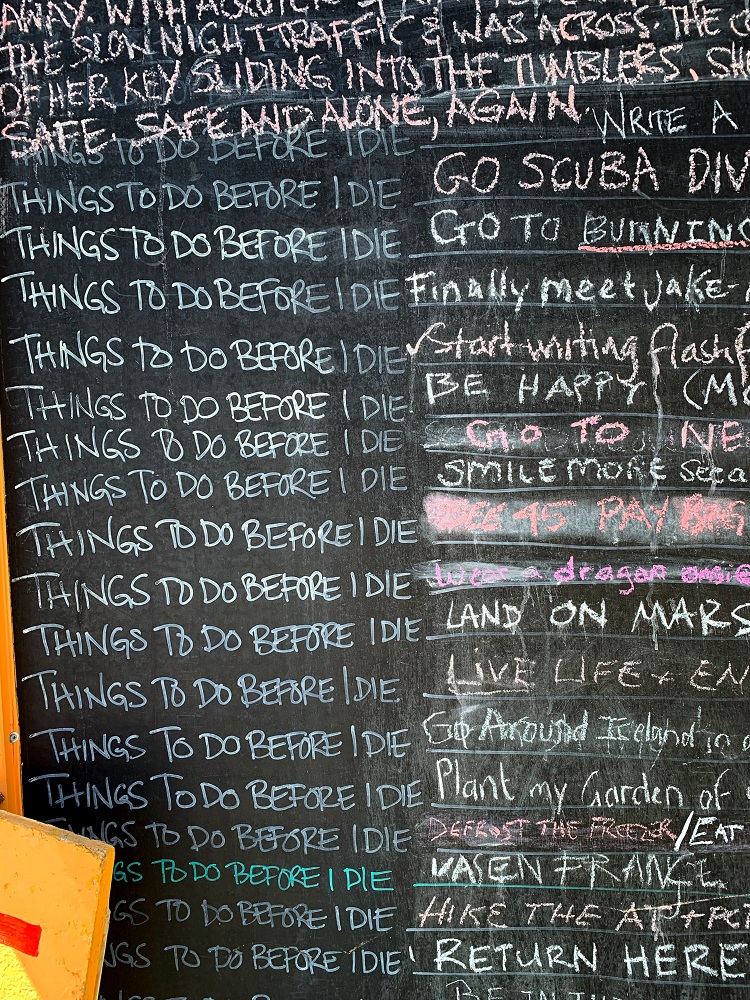 AWAY. WITH
THE SLOW NIGHT TRAFFIC & WAS ACROSS. THE
OF HER KEY SLIDING INTO THE TUMBLERS. SHE
SAFE. SAFE AND ALONE, AGAIN.
THINGS TO DO BEFORE I DIE WRITE A
THINGS TO DO BEFORE I DIE GO SCUBA DIV
THINGS TO DO BEFORE I DIE GO TO BURNING
THINGS TO DO BEFORE I DIE Finally meet Jake-
THINGS TO DO BEFORE I DIE ✓Start writing flash f
THINGS TO DO BEFORE I DIE BE HAPPY (M
THINGS TO DO BEFORE I DIE GO TO NE
THINGS TO DO BEFORE I DIE SMILE MORE
THINGS TO DO BEFORE I DIE SEE 45 PAY
THINGS TO DO BEFORE I DIE Wear a dragon onsie
THINGS TO DO BEFORE I DIE LAND ON MARS
THINGS TO DO BEFORE I DIE LIVE LIFE + EN
THINGS TO DO BEFORE I DIE Go Around Iceland in a
THINGS TO DO BEFORE I DIE Plant my Garden of
THINGS TO DO BEFORE I DIE DEFROST THE FREEZER/EAT
GS TO DO BEFORE I DIE
GS TO DO BEFORE I DIE HIKE THE AT +
NGS TO DO BEFORE I DIE RETURN HERE
BE IN